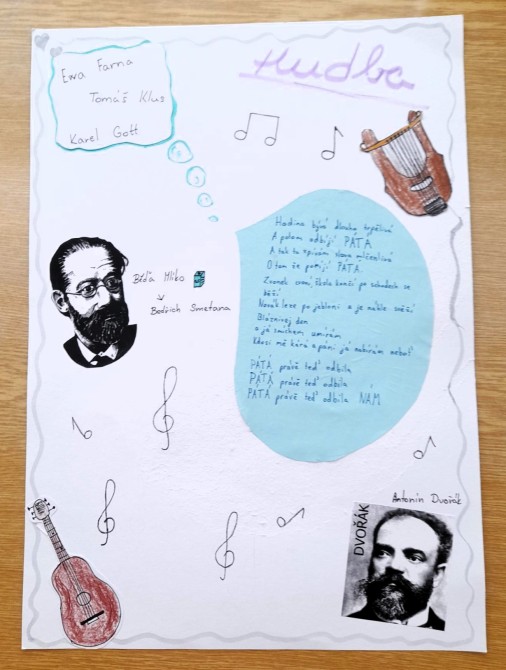 Hudba
Ewa Farna
Tomáš Klus
Karel Gott
Hodina bývá dlouhá trpělivá
A potom odbíjí PÁTA
A tak tu zpívám slova mlčenlivá
O tom že patřijí PÁTA
Zvonek zvoní, škola končí po schodech se
běží
Novák leze po jabloni a je náhle svěží
Bláznivej den
a já smíchem umírám
Kdosi mě kárá a pání já nabírám
PÁTÁ právě teď odbila
PÁTÁ právě teď odbila
PÁTÁ právě teď odbila NÁM
Béďa Mlíko
Bedřich Smetana
Antonín Dvořák
DVOŘÁK